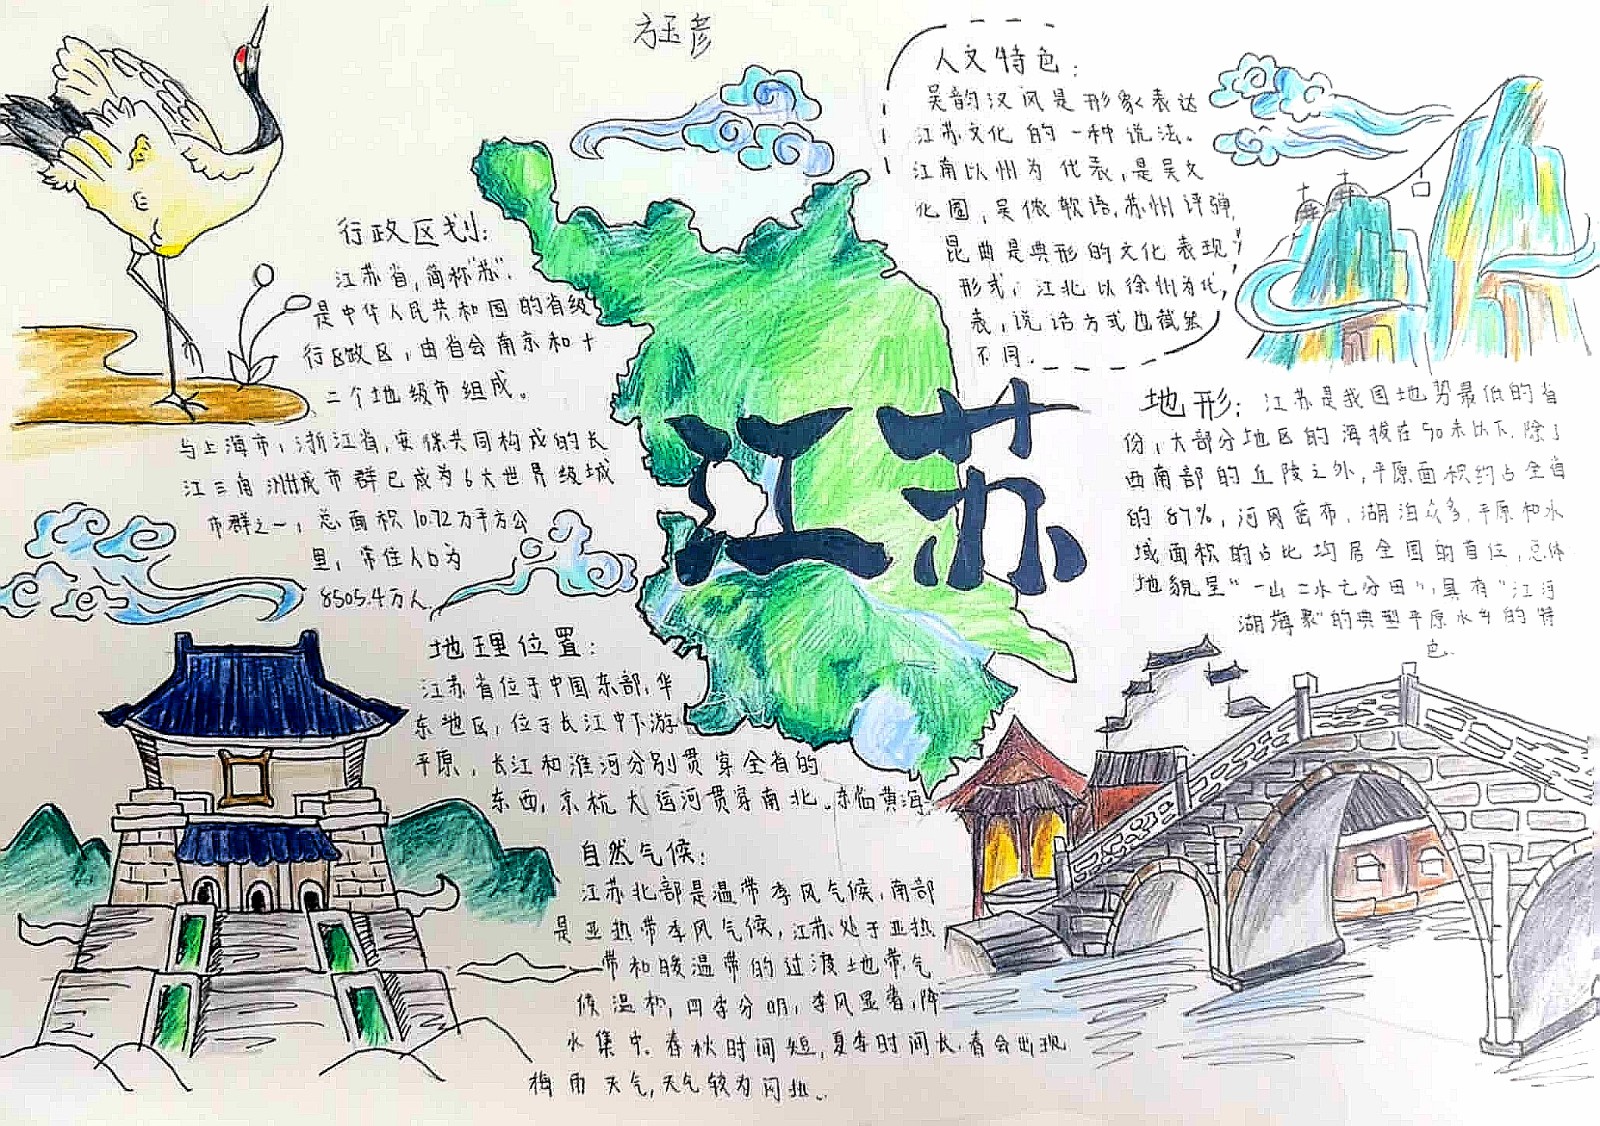 方玉彦
人文特色：
吴韵汉风是形象表达
江苏文化的一种说法。
江南以州为代表，是吴文
化圈，吴侬软语，苏州评弹，
昆曲是典形的文化表现
形式；江北以徐州为代
表，说话方式也截然
不同。
行政区划：
江苏省，简称"苏"，
是中华人民共和国的省级
行政区，由省会南京和十
二个地级市组成。
与上海市，浙江省，安徽共同构成的长
江三角洲城市群已成为6大世界级城
市群之一，总面积10.72万平方公
里，常住人口为
8505.4万人
江苏
地形：江苏是我国地势最低的省
份，大部分地区的海拔在50米以下，除了
西南部的丘陵之外，平原面积约占全省
的87%，河网密布，湖泊众多，平原和水
域面积的占比均居全国的首位，总体
地貌呈"一山二水七分田"，具有"江河
湖海聚"的典型平原水乡的特
色.
地理位置：
江苏省位于中国东部，华
东地区，位于长江中下游
平原，长江和淮河分别贯穿全省的
东西，京杭大运河贯穿南北。东临黄海
自然气候：
江苏北部是温带季风气候，南部
是亚热带季风气候，江苏处于亚热
带和暖温带的过渡地带，气
候温和，四季分明，季风显著，降
水集中。春秋时间短，夏季时间长，春会出现
梅雨天气，天气较为闷热。